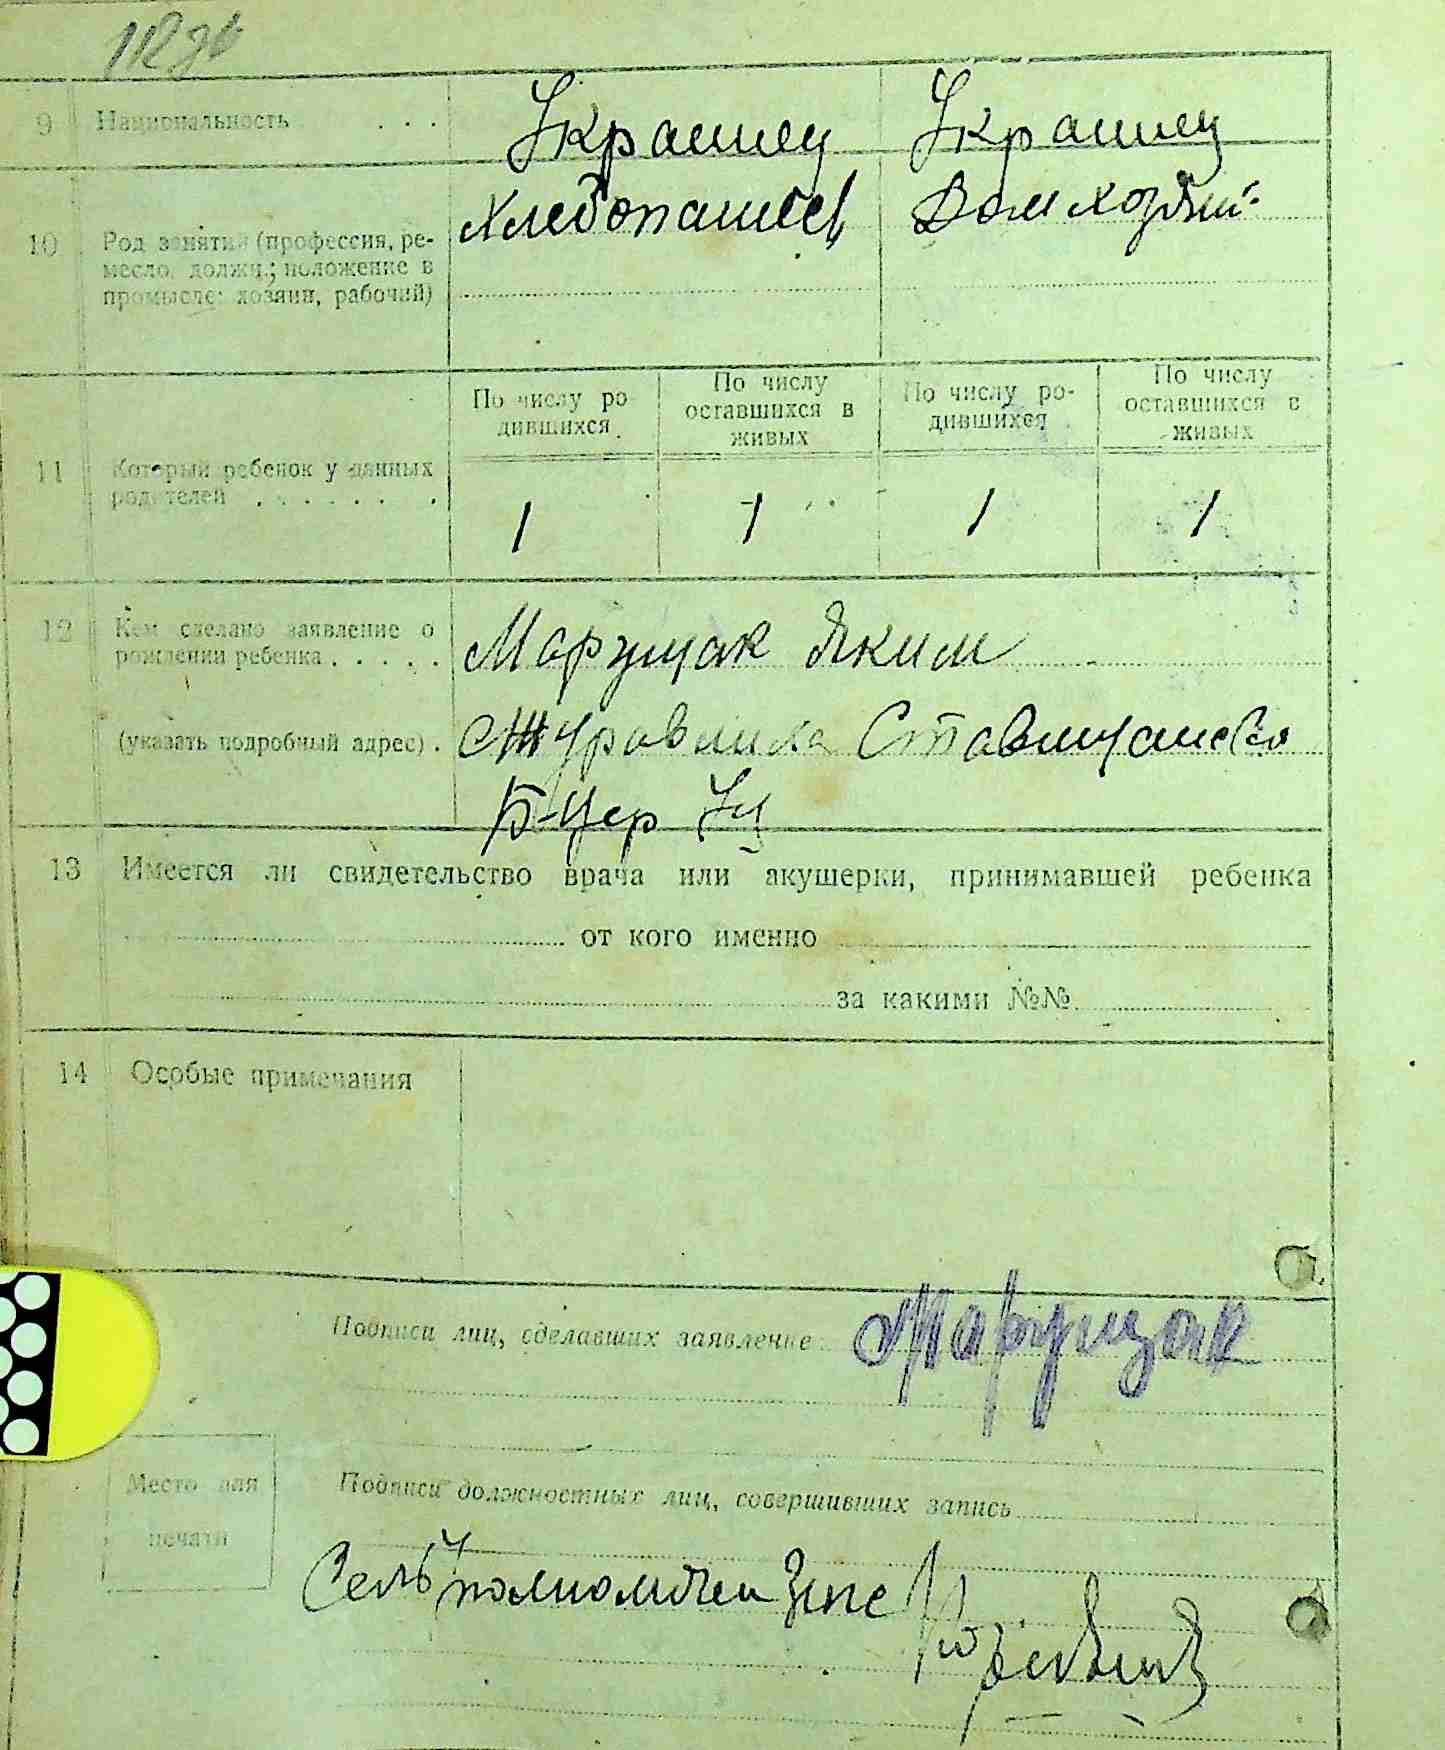 112
9 Национальность . . . Украинец Украинец
10 Род занятий (профессия, ре- Хлебопашец Домхозяй
месло, должн.; положение в
промысле: хозяин, рабочий)
По числу ро- По числу По числу ро- По числу
дившихся оставшихся в дившихся оставшихся в
живых живых
11 Который ребенок у данных
родителей . . . . . . . 1 1 1 1
12 Кем сделано заявление о
рождении ребенка . . . . . Марущак Яким
(указать подробный адрес) . Журавлиха Ставищанско
Б-Цер
13 Имеется ли свидетельство врача или акушерки, принимавшей ребенка
от кого именно
за какими №№
14 Особые примечания
Подписи лиц, сделавших заявление Марущак
Место для
печати
Подписи должностных лиц, совершивших запись